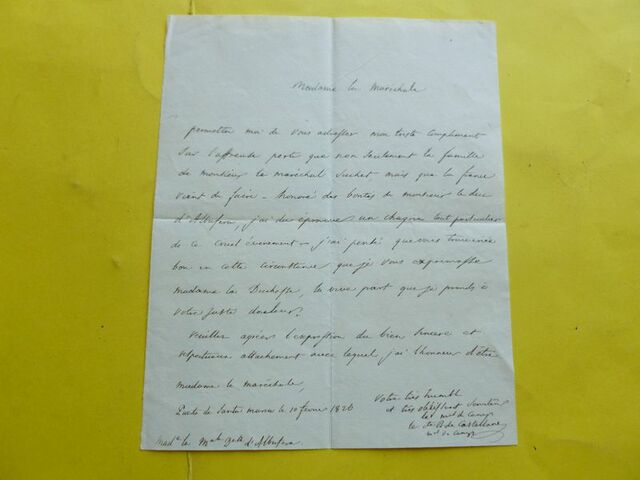 Madame la Maréchale
permettez moi de vous adresser mon triste compliment
Sur l'affreuse perte que non Seulement la famille
de monsieur le maréchal Suchet mais que la france
vient de faire - honoré des bontés de monsieur le duc
d'Albufera, j'ai du éprouver un chagrin tout particulier
de ce cruel évènement - j'ai pensé que vous trouveriez
bon en cette circonstance que je vous exprimasse
madame la Duchesse, la vive part que je prends à
votre juste douleur.
veuillez agréer l'expression du bien sincere et
respectueux attachement avec lequel j'ai l'honneur d'être
madame la maréchale,
Puerto de Santa maria le 10 février 1826
Votre très humble
et très obéissant Serviteur
le mal de camp
le cte B de Castellane
mal de camp
Made la Male d'Albufera